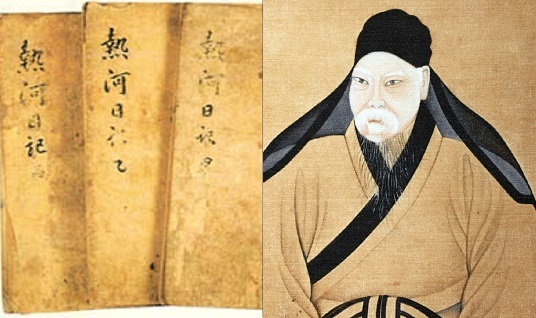 熱河日記 甲
熱河日記 乙
熱河日記 丙